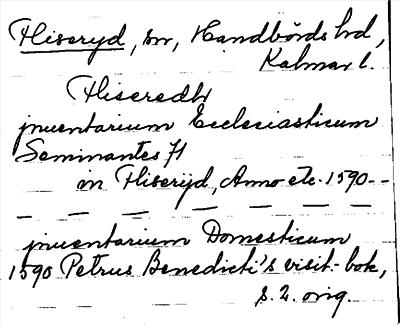 Fliseryd, sn, Handbörds hd,
Kalmar l.
Fliseredh
jnuentarium Ecclesiasticum
in Fliseryd, Anno etc. 1590 --
jnuentarium Domesticum
1590 Petrus Benedicti's visit.-bok,
s. 2. orig.